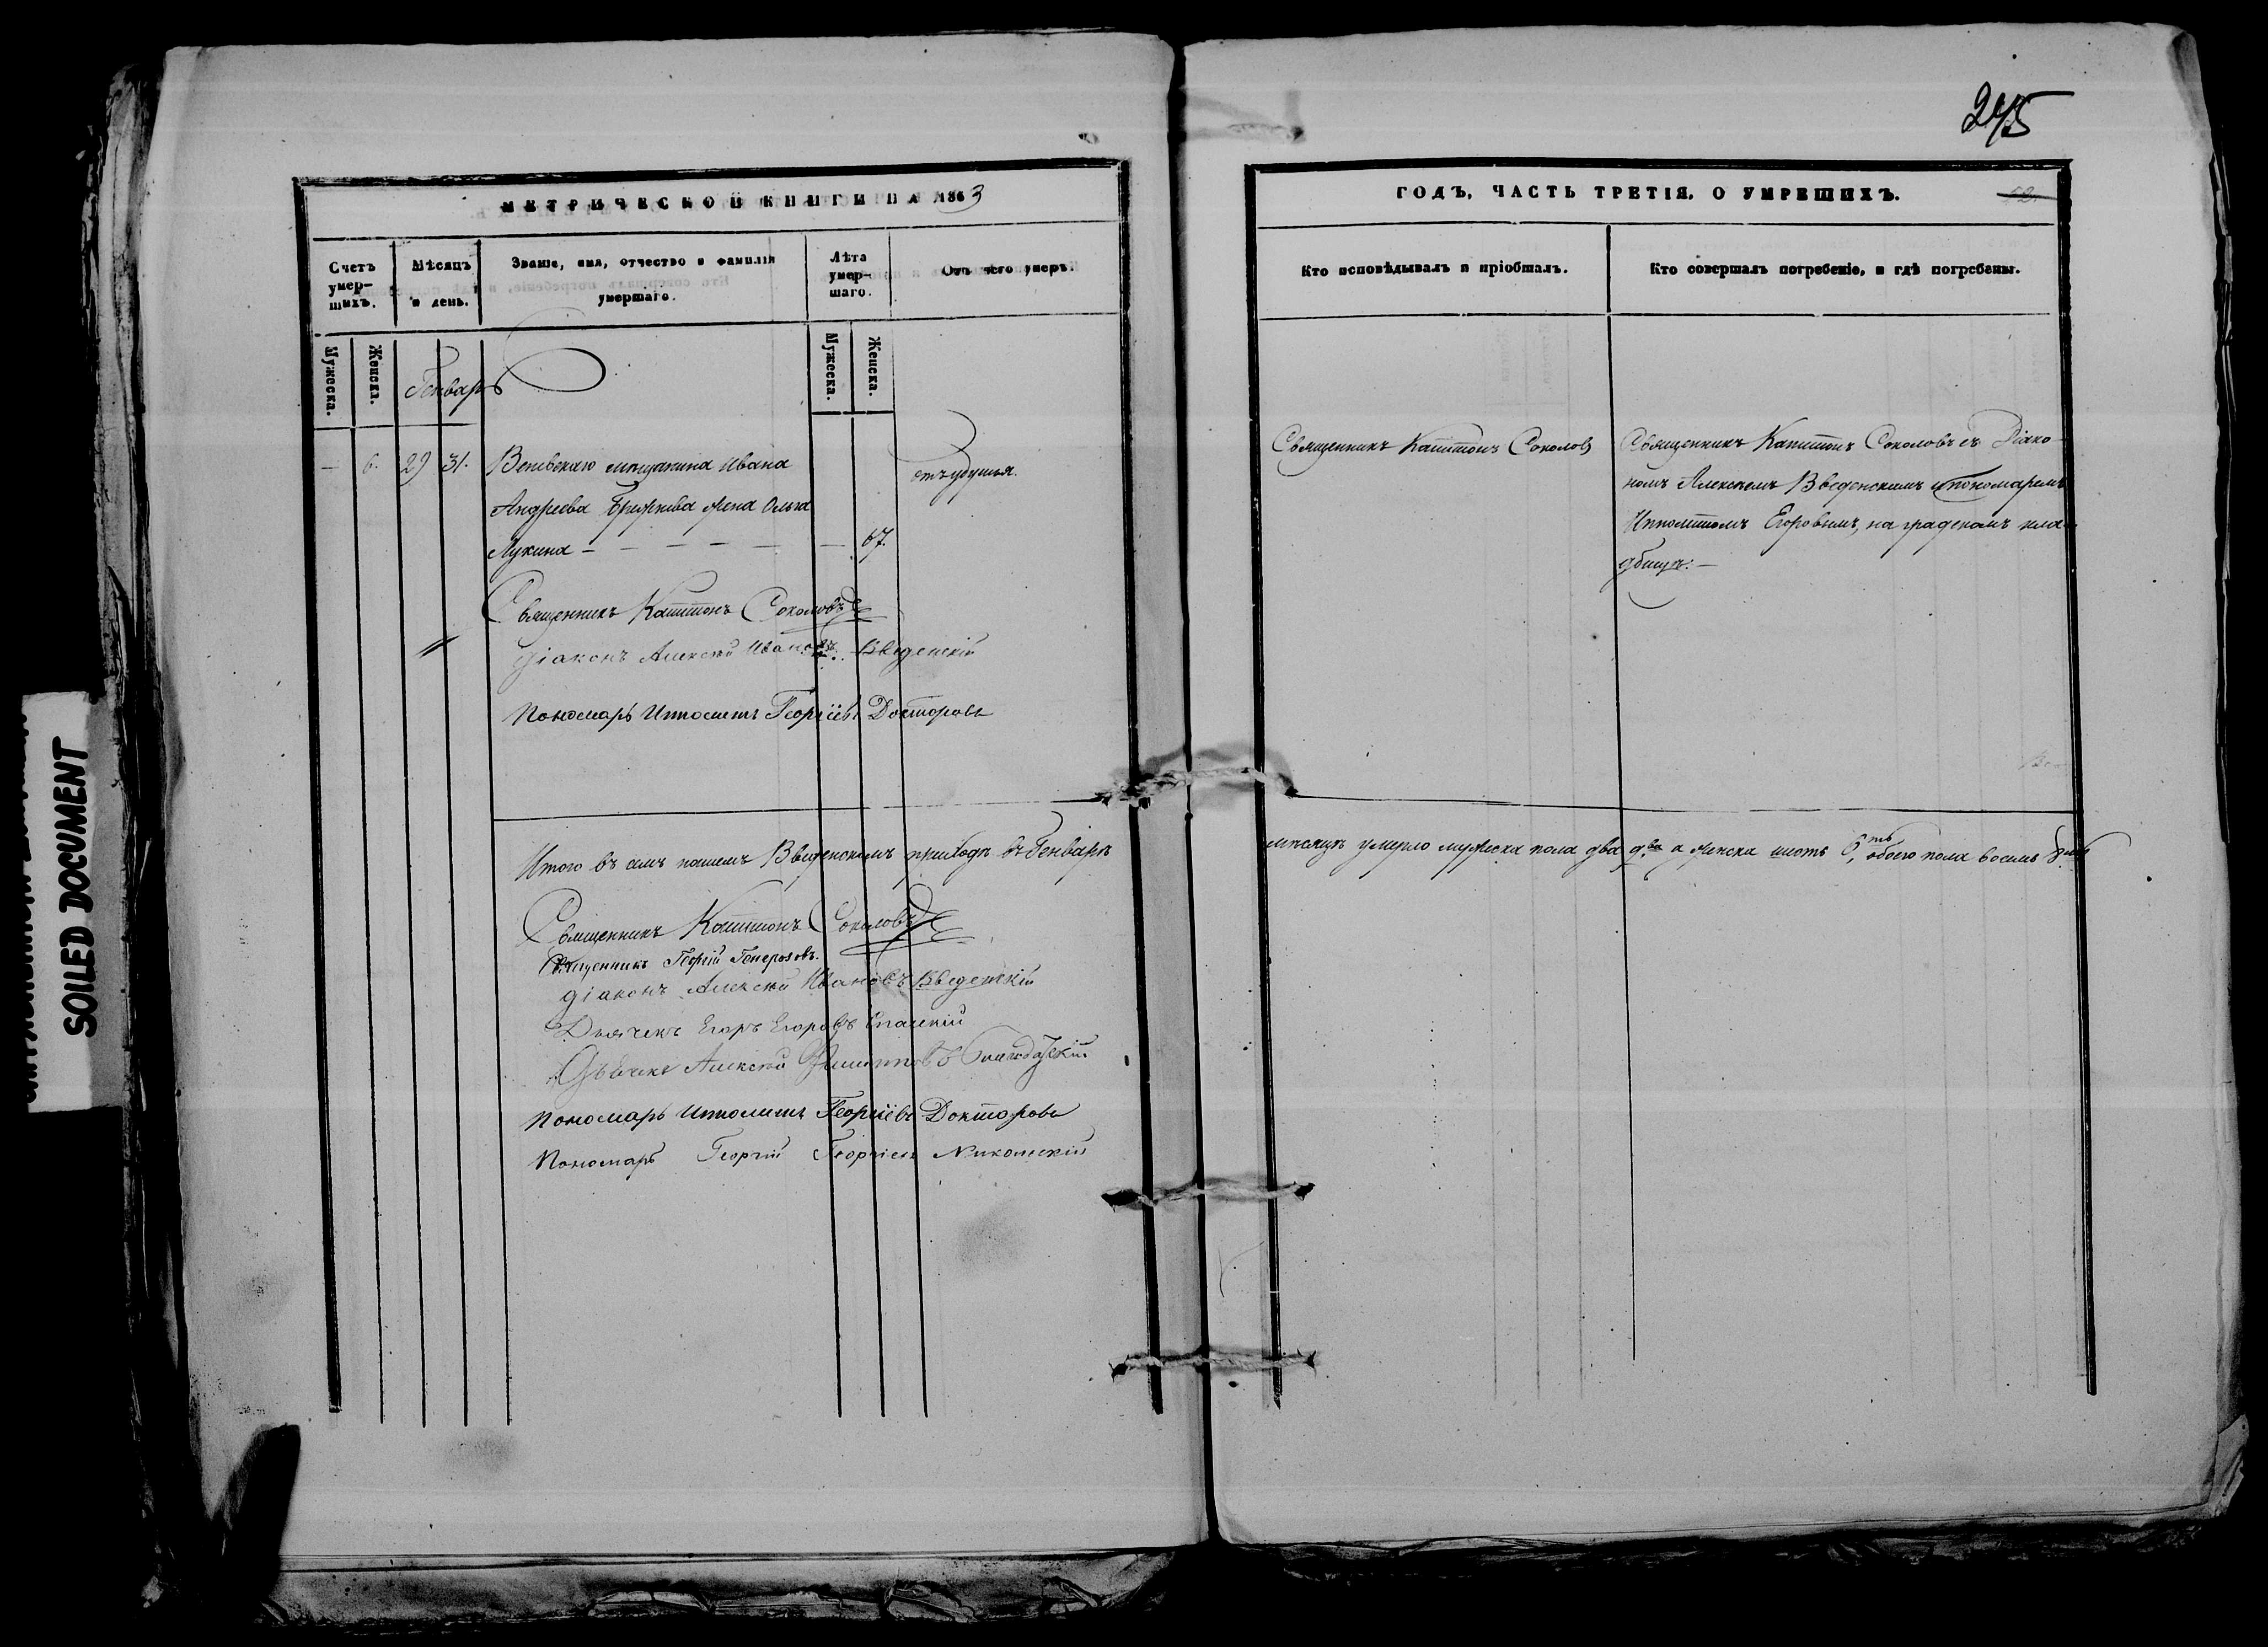 245
МЕТРИЧЕСКОЙ КНИГИ НА 1863
ГОДЪ, ЧАСТЬ ТРЕТІЯ, О УМЕРШИХЪ.
Счетъ умер-шихъ.
Мѣсяцъ и день.
Званіе, имя, отчество и фамилія умершаго.
Лѣта умер-шаго.
Отъ чего умеръ.
Кто исповѣдывалъ и пріобщалъ.
Кто совершалъ погребеніе, и гдѣ погребены.
Мужеска.
Женска.
Генварь
Мужеска.
Женска.
— 6. 29 31. Веневскаго мѣщанина Ивана
Андреева жена Ольга
Лукина — — — — — — 67.
отъ удушья.
Священникъ Капитонъ Соколовъ
Священникъ Капитонъ Соколовъ съ Діако-
номъ Алексѣемъ Введенскимъ и пономаремъ
Ипполитомъ Егоровымъ, на градскомъ кла-
дбищѣ. —
Священникъ Капитонъ Соколовъ
Діаконъ Алексѣй Ивановъ Введенскій
Пономарь Ипполитъ Георгіевъ Докторовъ
Итого въ семъ нашемъ Введенскомъ приходѣ въ Генварѣ
мѣсяцѣ умерло мужеска пола два два а женска шесть 6ть, обоего пола восемь 8мь
Священникъ Капитонъ Соколовъ
Священникъ Георгій Генерозовъ.
Діаконъ Алексѣй Ивановъ Введенскій
Дьячекъ Егоръ Егоровъ Спасскій
Дьячекъ Алексѣй Филипповъ
Пономарь Ипполитъ Георгіевъ Докторовъ
Пономарь Георгій Георгіевъ Никольскій
SOILED DOCUMENT